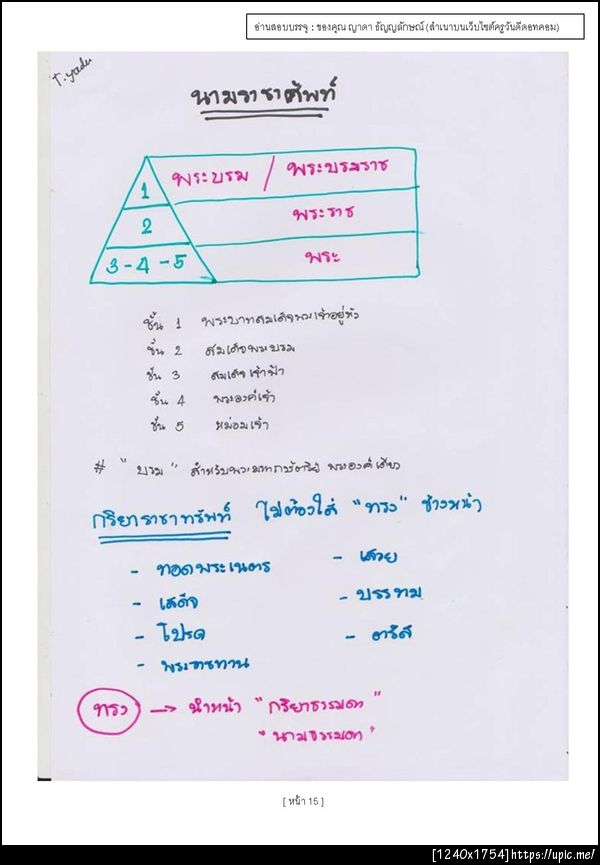 อ่านสอบบรรจุ : ของคุณ ญาดา ธัญญลักษณ์ (สำเนาบนเว็บไซต์ครูวันดีดอทคอม)
T. yada
นามราชาศัพท์
1 พระบรม / พระบรมราช
2 พระราช
3 - 4 - 5 พระ
ชั้น 1 พระบาทสมเด็จพระเจ้าอยู่หัว
ชั้น 2 สมเด็จพระบรม
ชั้น 3 สมเด็จเจ้าฟ้า
ชั้น 4 พระองค์เจ้า
ชั้น 5 หม่อมเจ้า
# "บรม" สำหรับพระมหากษัตริย์ พระองค์เดียว
กริยาราชาทรัพท์ ไม่ต้องใส่ "ทรง" ข้างหน้า
- ทอดพระเนตร - เสวย
- เสด็จ - บรรทม
- โปรด - ตรัส
- พระราชทาน
ทรง → นำหน้า "กริยาธรรมดา"
"นามธรรมดา"
[ หน้า 15 ]
[1240x1754]https://upic.me/